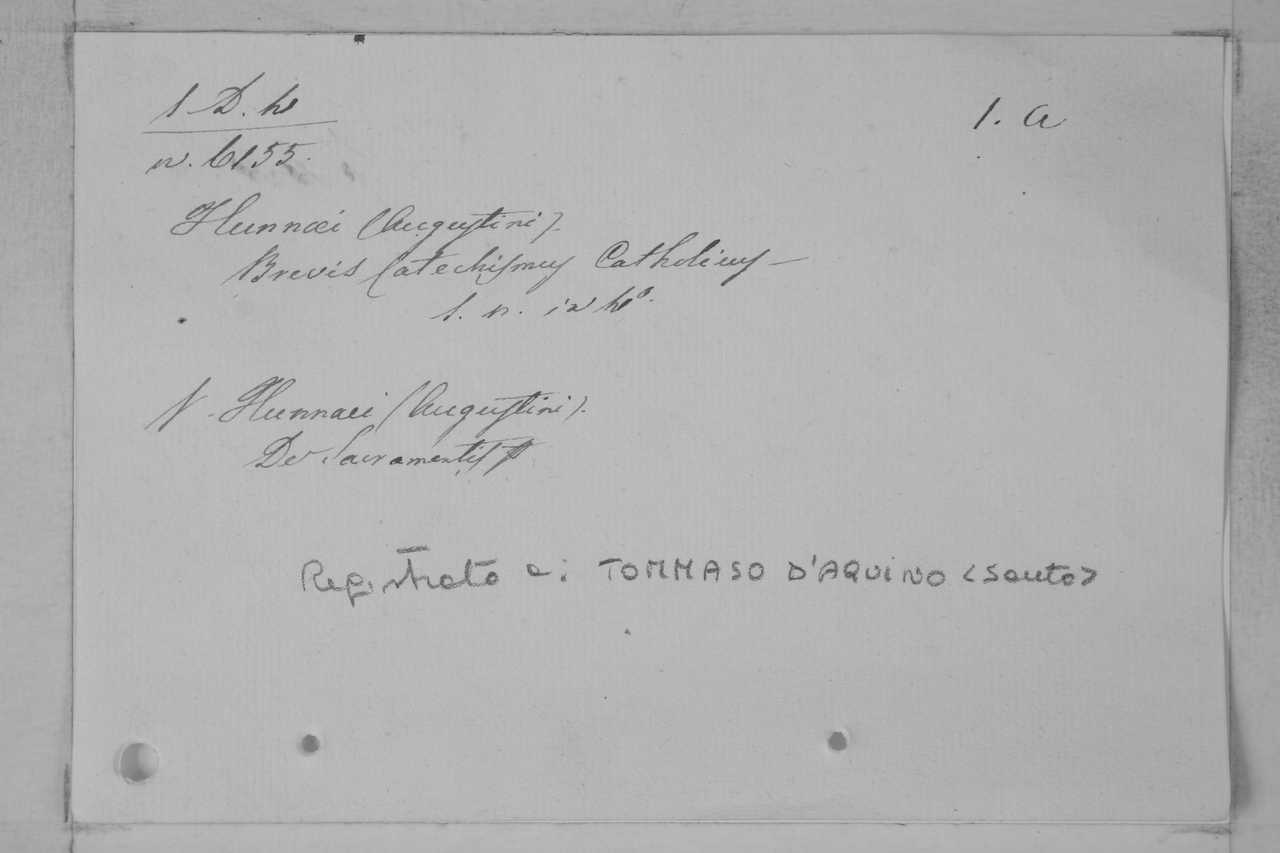 1. D. 4
1. a
n. 6155.
Hunnæi (Augustini).
Brevis Catechismus Catholicus —
s. n. in 4º.
V. Hunnaei (Augustini).
De Sacramentis
Registrato a: TOMMASO D'AQUINO <Santo>